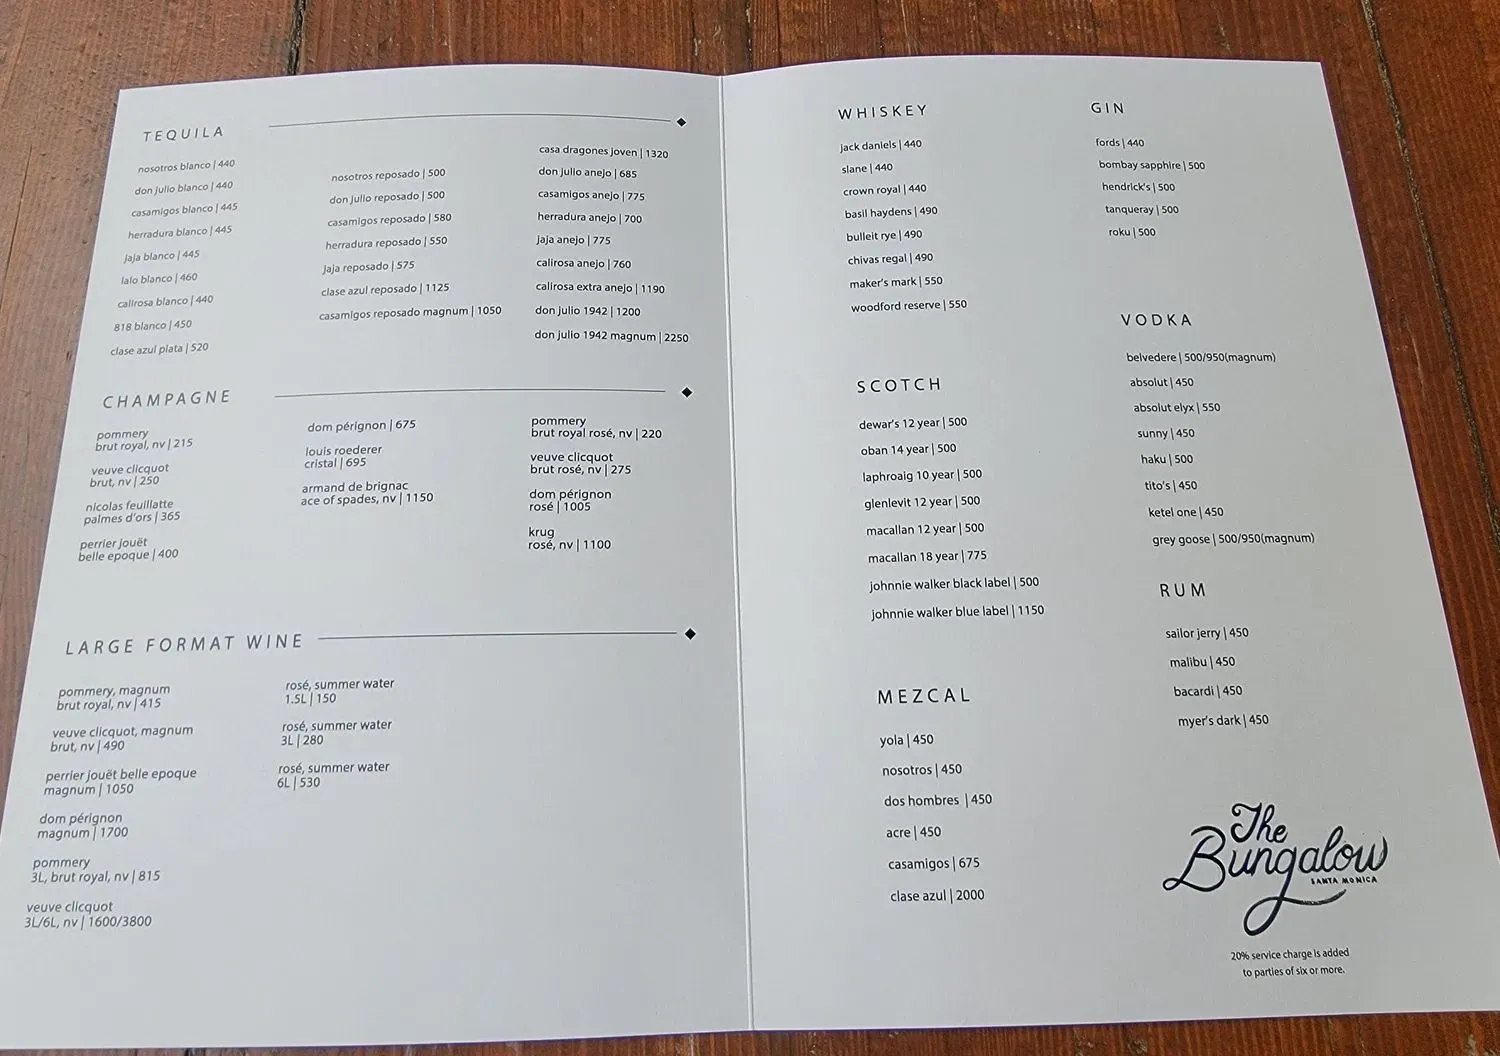 TEQUILA
nosotros blanco | 440
don julio blanco | 440
casamigos blanco | 445
herradura blanco | 445
jaja blanco | 445
lalo blanco | 460
calirosa blanco | 440
818 blanco | 450
clase azul plata | 520
nosotros reposado | 500
don julio reposado | 500
casamigos reposado | 580
herradura reposado | 550
jaja reposado | 575
clase azul reposado | 1125
casamigos reposado magnum | 1050
casa dragones joven | 1320
don julio anejo | 685
casamigos anejo | 775
herradura anejo | 700
jaja anejo | 775
calirosa anejo | 760
calirosa extra anejo | 1190
don julio 1942 | 1200
don julio 1942 magnum | 2250
CHAMPAGNE
pommery
brut royal, nv | 215
veuve clicquot
brut, nv | 250
nicolas feuillatte
palmes d'ors | 365
perrier jouët
belle epoque | 400
dom pérignon | 675
louis roederer
cristal | 695
armand de brignac
ace of spades, nv | 1150
pommery
brut royal rosé, nv | 220
veuve clicquot
brut rosé, nv | 275
dom pérignon
rosé | 1005
krug
rosé, nv | 1100
LARGE FORMAT WINE
pommery, magnum
brut royal, nv | 415
veuve clicquot, magnum
brut, nv | 490
perrier jouët belle epoque
magnum | 1050
dom pérignon
magnum | 1700
pommery
3L, brut royal, nv | 815
veuve clicquot
3L/6L, nv | 1600/3800
rosé, summer water
1.5L | 150
rosé, summer water
3L | 280
rosé, summer water
6L | 530
WHISKEY
jack daniels | 440
slane | 440
crown royal | 440
basil haydens | 490
bulleit rye | 490
chivas regal | 490
maker's mark | 550
woodford reserve | 550
SCOTCH
dewar's 12 year | 500
oban 14 year | 500
laphroaig 10 year | 500
glenlevit 12 year | 500
macallan 12 year | 500
macallan 18 year | 775
johnnie walker black label | 500
johnnie walker blue label | 1150
MEZCAL
yola | 450
nosotros | 450
dos hombres | 450
acre | 450
casamigos | 675
clase azul | 2000
GIN
fords | 440
bombay sapphire | 500
hendrick's | 500
tanqueray | 500
roku | 500
VODKA
belvedere | 500/950(magnum)
absolut | 450
absolut elyx | 550
sunny | 450
haku | 500
tito's | 450
ketel one | 450
grey goose | 500/950(magnum)
RUM
sailor jerry | 450
malibu | 450
bacardi | 450
myer's dark | 450
The
Bungalow
SANTA MONICA
20% service charge is added
to parties of six or more.